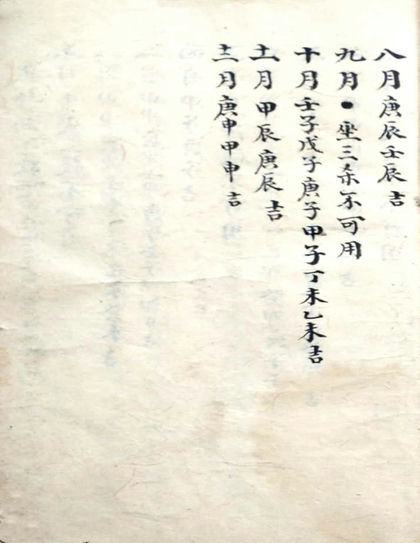 八月庚辰壬辰吉
九月●坐三杀不可用
十月壬子戊子庚子甲子丁未乙未吉
十一月甲辰庚辰吉
十二月庚申甲申吉